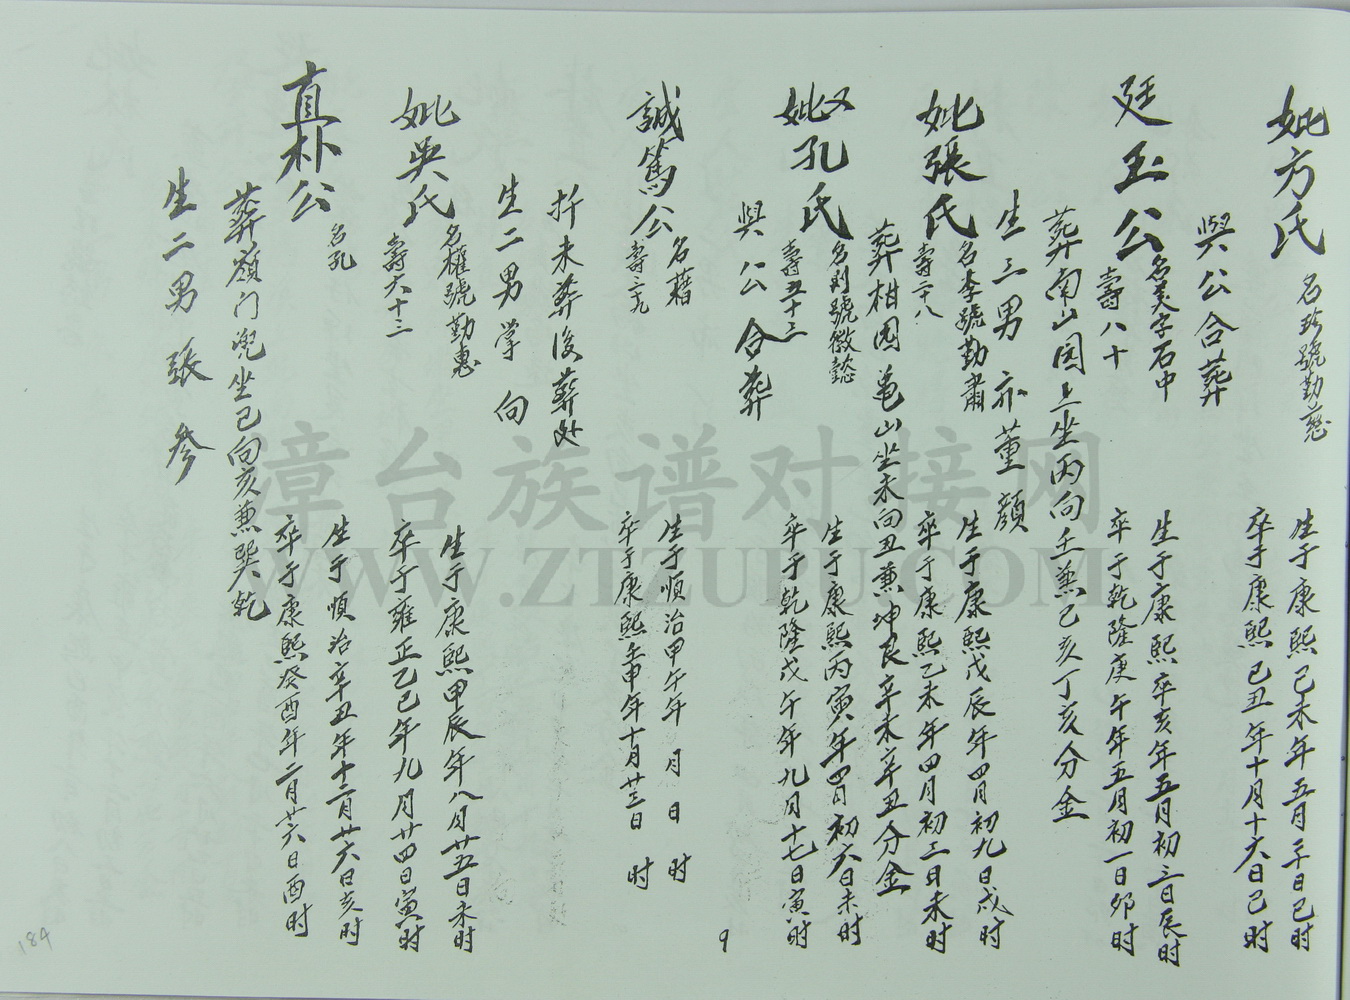 妣方氏 名珍號勤慈 生于康熙己未年五月二十日巳时
卒于康熙己丑年十月十六日巳时
與公合葬
廷玉公 名美字石中 生于康熙辛亥年五月初三日辰时
壽八十 卒于乾隆庚午年五月初一日卯时
葬南山园上坐丙向壬兼己亥丁亥分金
生三男 亦董顏
妣張氏 名李號勤肅 生于康熙戊辰年四月初九日戌时
壽二十八 卒于康熙乙未年四月初三日未时
葬柑园亀山坐未向丑兼坤艮辛未辛丑分金
又妣孔氏 名則號徽懿 生于康熙丙寅年四月初六日未时
壽五十三 卒于乾隆戊午年九月十七日寅时
與公合葬
誠篤公 名藉 生于順治甲午年 月 日 时
壽三九 卒于康熙壬申年十月廿三日 时
折未葬後葬处
生二男学向
妣吳氏 名權號勤惠 生于康熙甲辰年八月廿五日未时
壽六十三 卒于雍正乙巳年九月廿四日寅时
真朴公 名孔 生于順治辛丑年十二月廿六日亥时
卒于康熙癸酉年二月廿六日酉时
葬嶺门兜坐巳向亥兼巽乾
生二男張參
9
184
漳台族谱对接网
WWW.ZTZUPU.COM